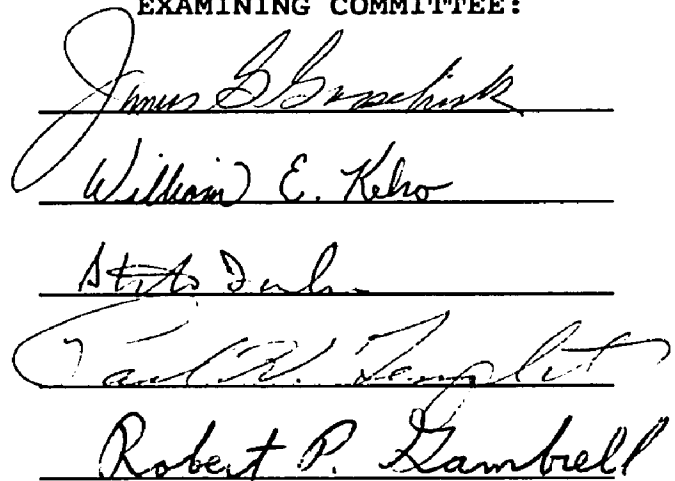 EXAMINING COMMITTEE:
James G.
William E. Kelso
Paul H. Templet
Robert P. Gambrell